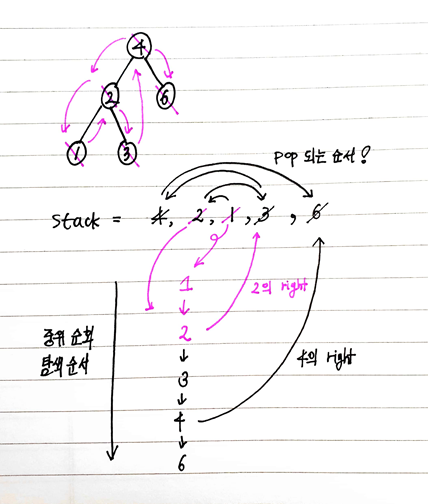 4
2
6
1
3
pop 되는 순서!
Stack = 4, 2, 1, 3, 6
1
2의 right
2
중위 순회
탐색 순서
3
4의 right
4
6